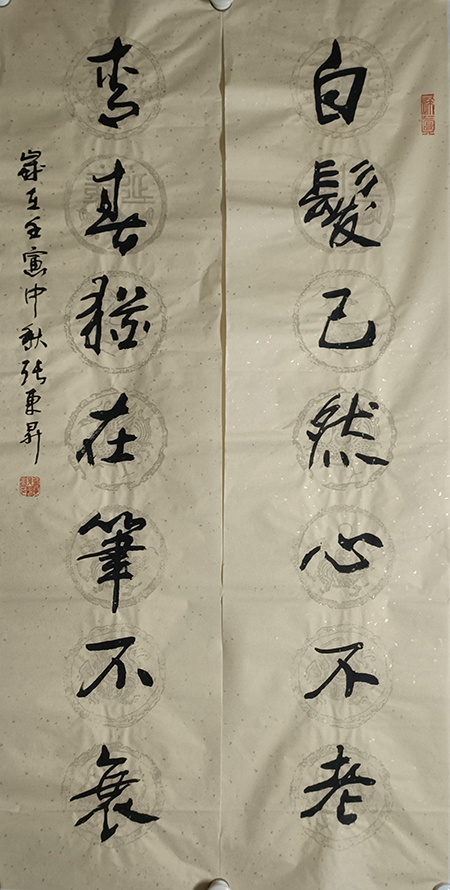 白髮已然心不老
青春猶在筆不衰
歲在壬寅中秋張東昇